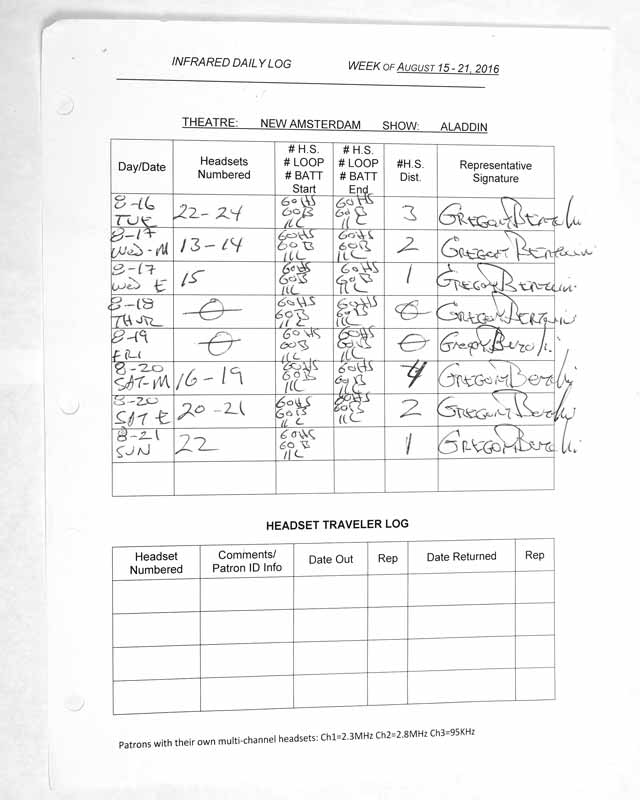 INFRARED DAILY LOG WEEK OF AUGUST 15 - 21, 2016
THEATRE: NEW AMSTERDAM SHOW: ALADDIN
Day/Date Headsets Numbered # H.S. # LOOP # BATT Start # H.S. # LOOP # BATT End #H.S. Dist. Representative Signature
8-16 TUE 22-24 60HS 60B 11L 60HS 60B 11L 3 GREGORY
8-17 WED-M 13-14 60HS 60B 11L 60HS 60B 11L 2 GREGORY
8-17 WED E 15 60HS 60B 11L 60HS 60B 11L 1 GREGORY
8-18 THUR 0 60HS 60B 11L 60HS 60B 11L 0 GREGORY
8-19 FRI 0 60HS 60B 11L 60HS 60B 11L 0 Gregory
8-20 SAT-M 16-19 60HS 60B 11L 60HS 60B 11L 4 GREGORY
8-20 SAT E 20-21 60HS 60B 11L 60HS 60B 11L 2 GREGORY
8-21 SUN 22 60HS 60B 11L 1 GREGORY
HEADSET TRAVELER LOG
Headset Numbered Comments/ Patron ID Info Date Out Rep Date Returned Rep
Patrons with their own multi-channel headsets: Ch1=2.3MHz Ch2=2.8MHz Ch3=95KHz